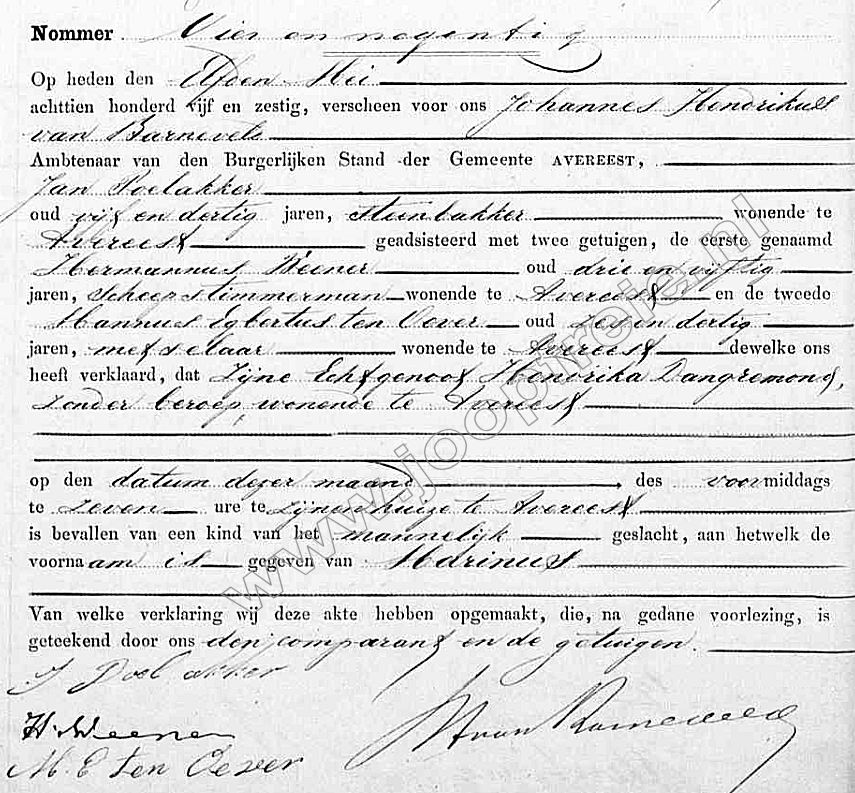 Nommer Vier en negentig
Op heden den Elfden Mei
achttien honderd vijf en zestig, verscheen voor ons Johannes Hendrikus
van Barneveld
Ambtenaar van den Burgerlijken Stand der Gemeente AVEREEST,
Jan Poelakker
oud vijf en dertig jaren, steenbakker wonende te
Avereest geadsisteerd met twee getuigen, de eerste genaamd
Hermannus Weener oud drie en vijftig
jaren, scheepstimmerman wonende te Avereest en de tweede
Mannus Egbertus ten Oever oud zes en dertig
jaren, metselaar wonende te Avereest dewelke ons
heeft verklaard, dat zijne Echtgenoot Hendrika Dangremond,
zonder beroep, wonende te Avereest
op den datum dezer maand, des voormiddags
te zeven ure te zijnen huize te Avereest
is bevallen van een kind van het mannelijk geslacht, aan hetwelk de
voornaam is gegeven van Marinus
Van welke verklaring wij deze akte hebben opgemaakt, die, na gedane voorlezing, is
geteekend door ons den comparant en de getuigen.
J Poelakker
H. Weener
JH van Barneveld
M. E ten Oever
www.jooppreie.nl